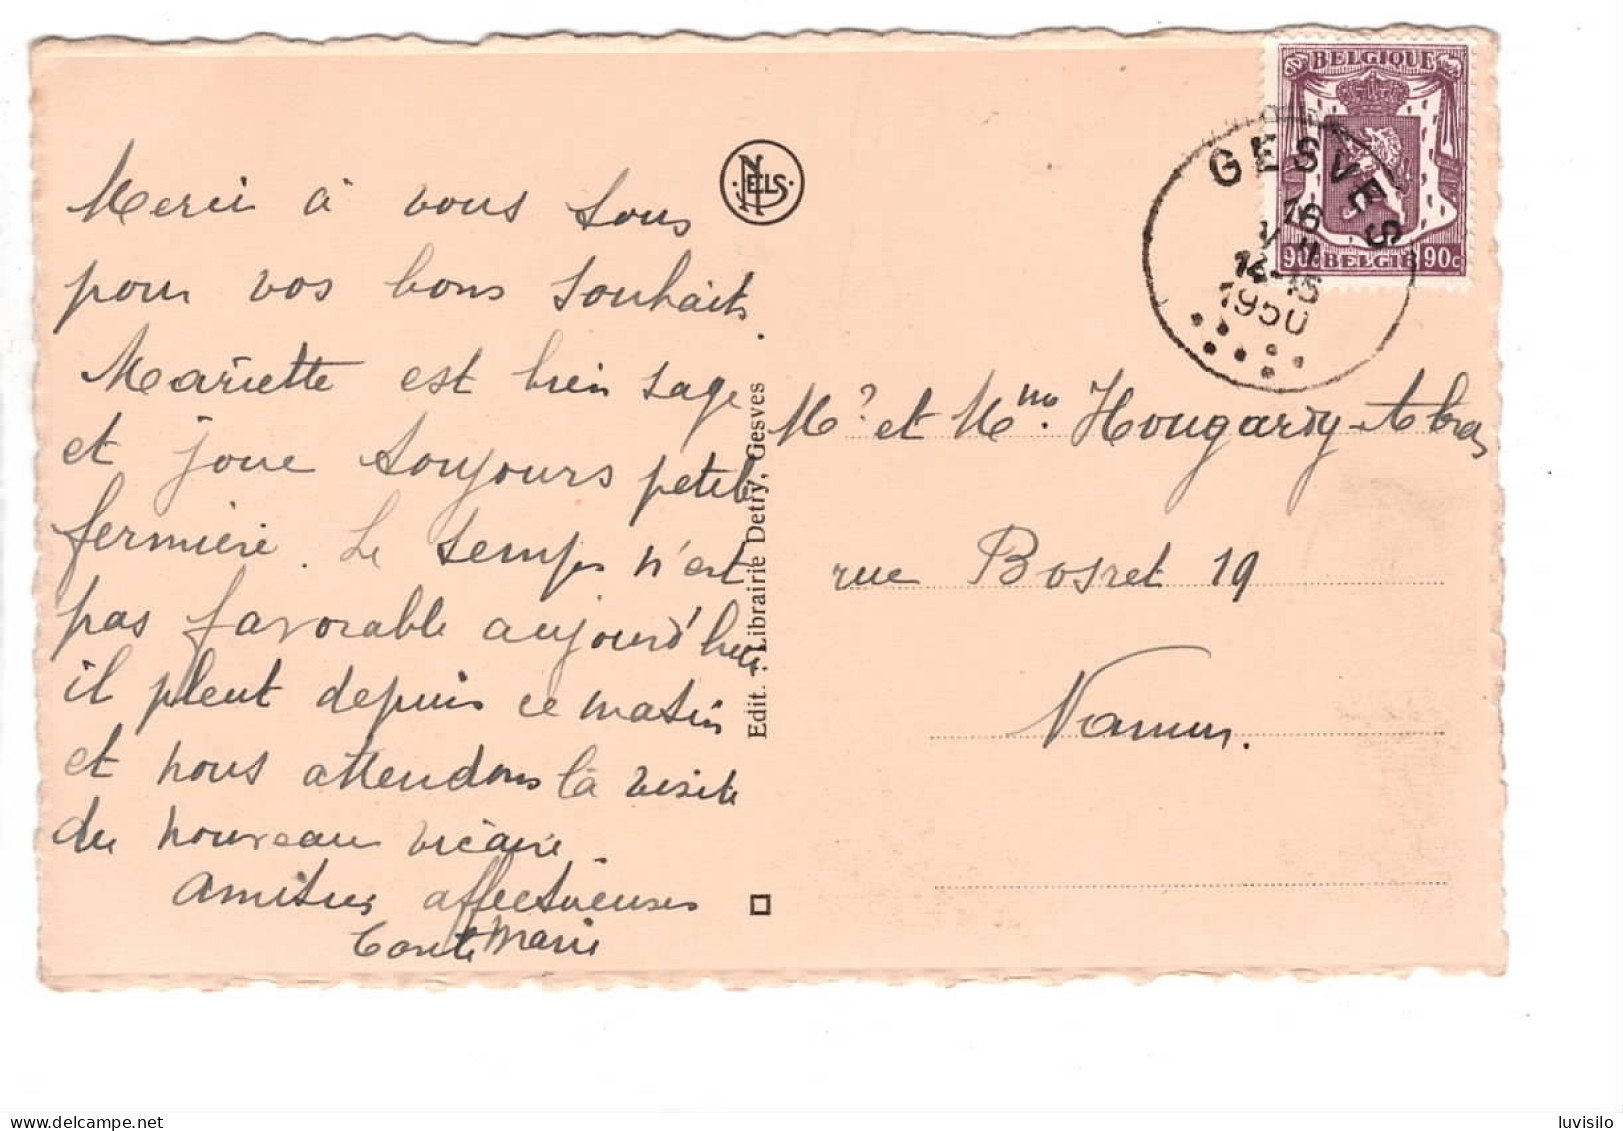 Merci à vous tous
pour vos bons souhaits.
Mariette est bien sage
et joue toujours petite
fermière. Le temps n'est
pas favorable aujourd'hui
il pleut depuis ce matin
et nous attendons la visite
du nouveau vicaire.
Amitiés affectueuses
Marie
NELS
Edit. : Librairie Detry, Gesves
BELGIQUE
90c BELGIË 90c
GESVES
16
VII
14-15
1950
Mr et Mme. Hougardy-
rue Bosret 19
Namur.
www.delcampe.net
luvisilo